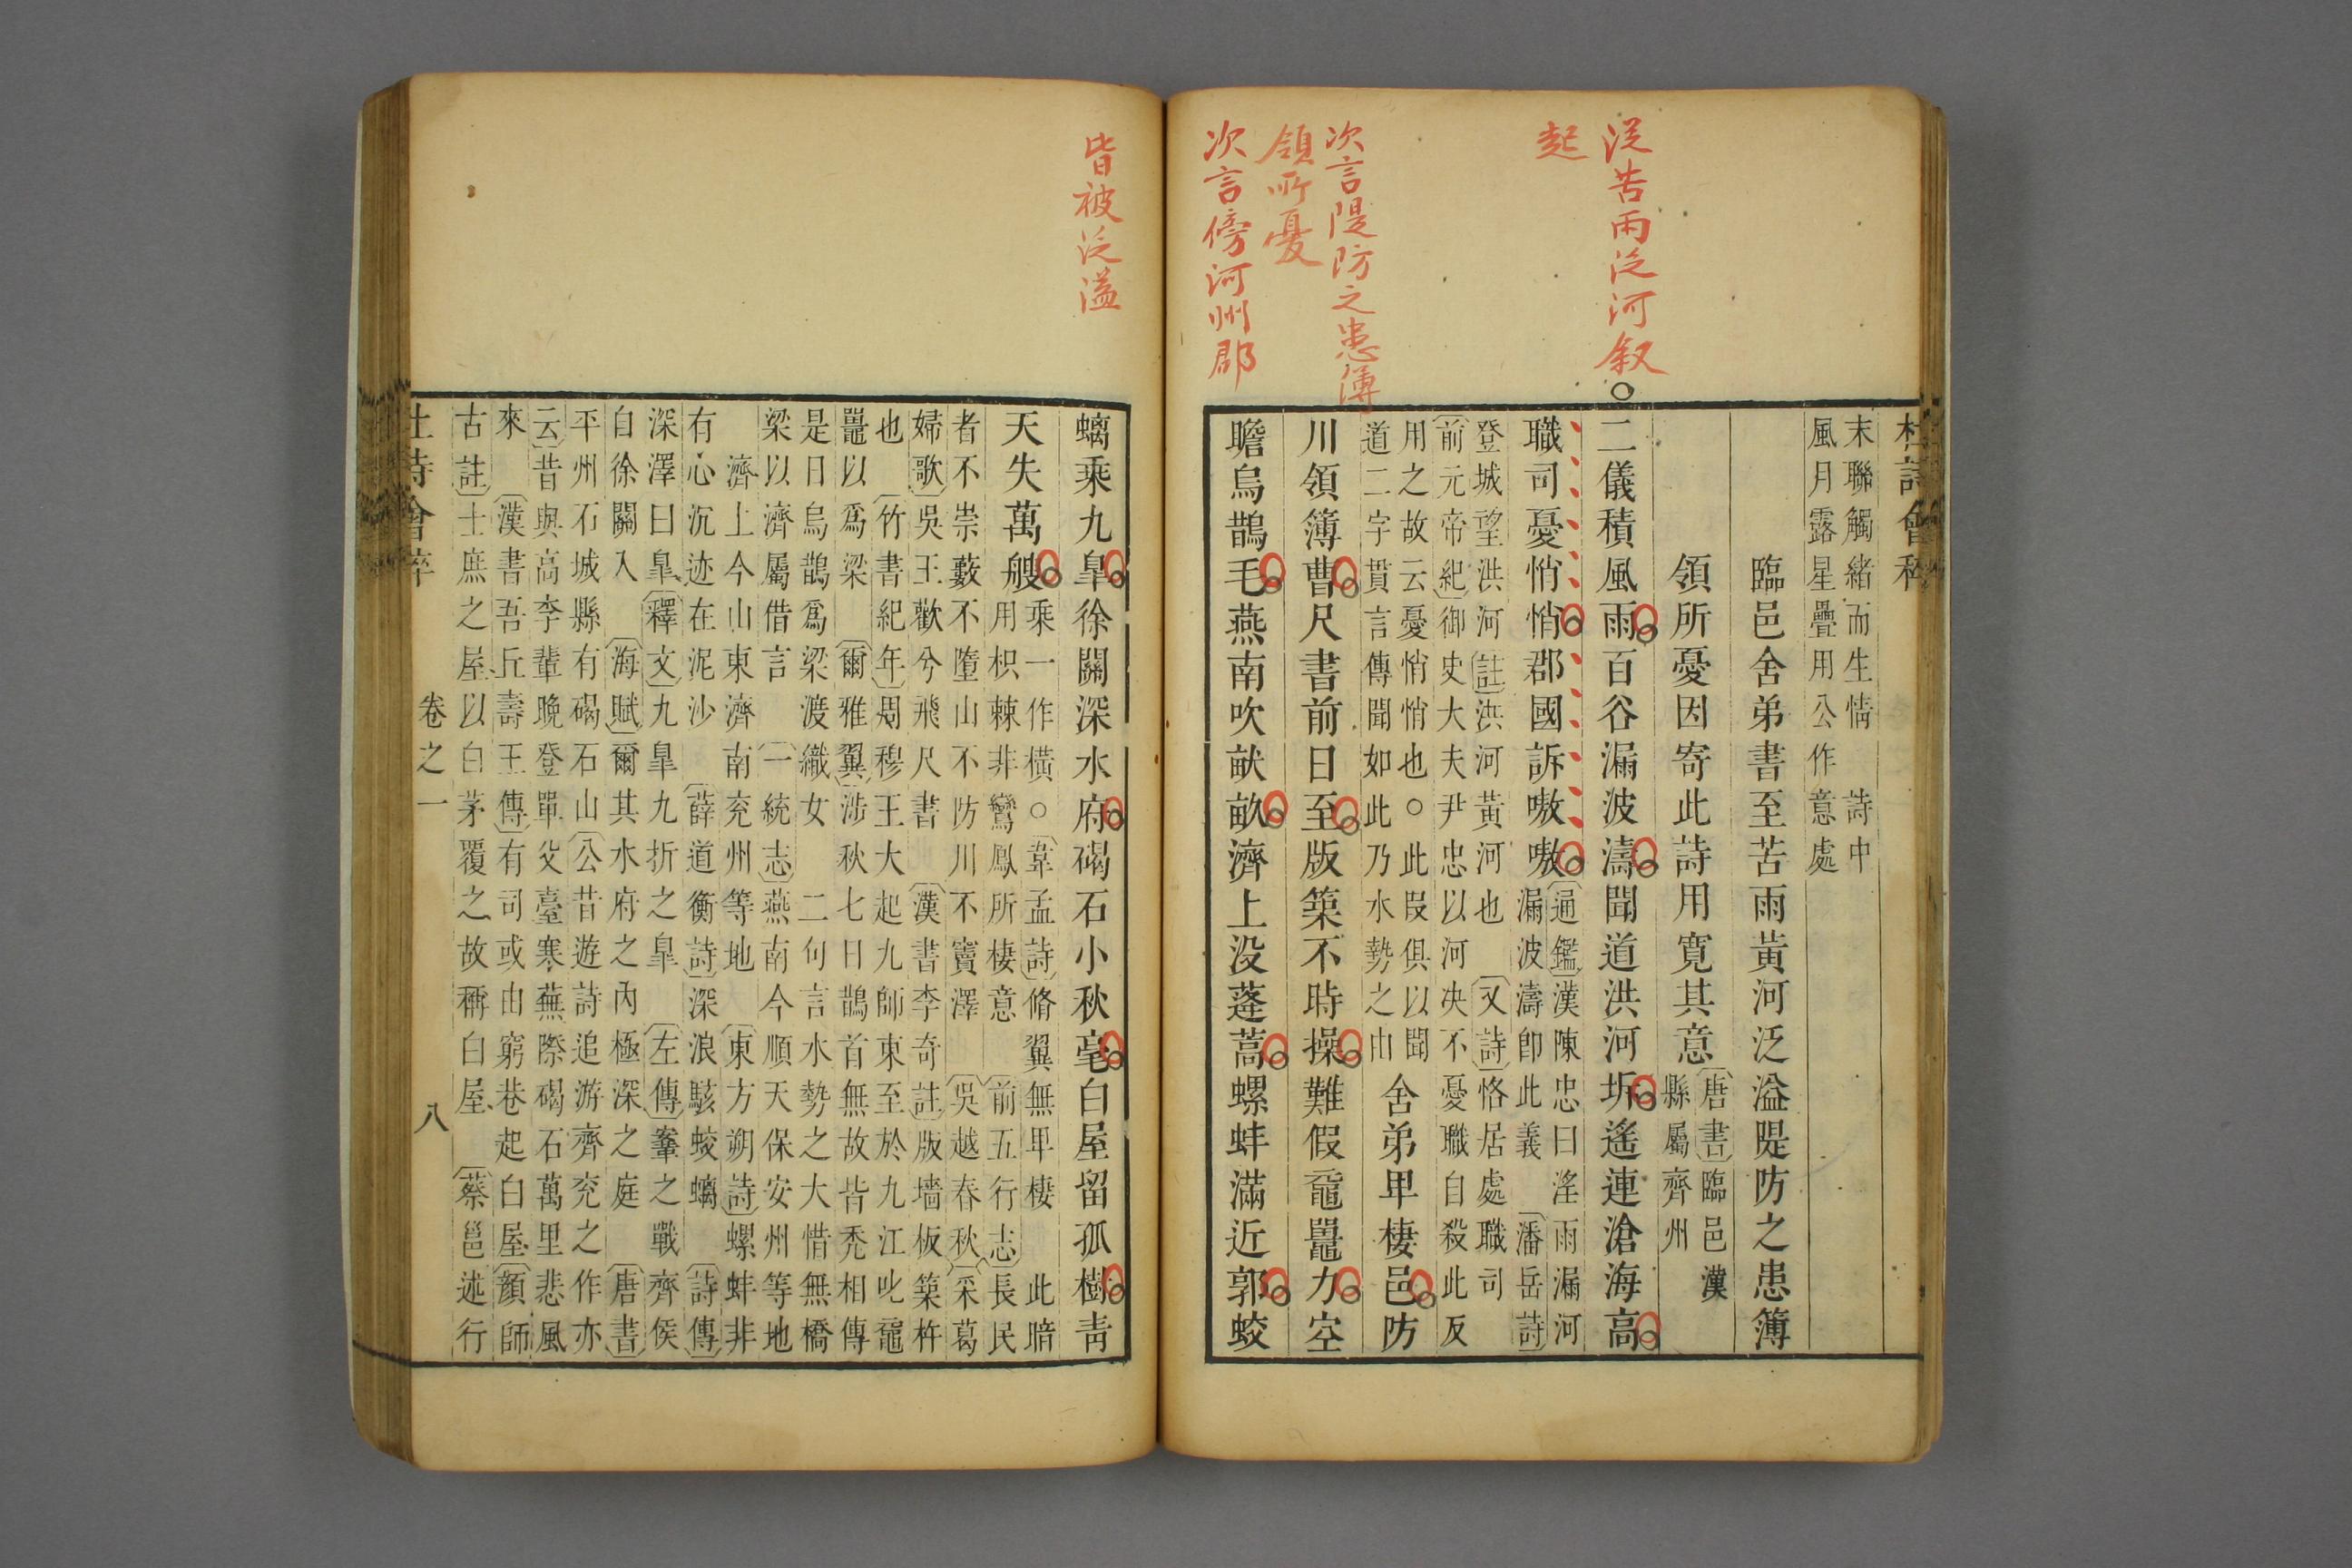 從苦雨泛河叙
起
次言隄防之患簿
領所憂
次言傍河州郡
杜詩會稡
末聯觸緒而生情 詩中
風月露星疊用公作意處
臨邑舍弟書至苦雨黃河泛溢隄防之患簿
領所憂因寄此詩用寬其意
唐書臨邑漢
縣屬齊州
二儀積風雨百谷漏波濤聞道洪河坼遙連滄海高
職司憂悄悄郡國訴嗷嗷
通鑑漢陳忠曰淫雨漏河
漏波濤卽此義 潘岳詩
登城望洪河註洪河黃河也 又詩恪居處職司
前元帝紀御史大夫尹忠以河决不憂職自殺此反
用之故云憂悄悄也○此叚俱以聞
道二字貫言傳聞如此乃水勢之由
舍弟卑棲邑防
川領簿曹尺書前日至版築不時操難假黿鼉力空
瞻烏鵲毛燕南吹畎畝濟上没蓬蒿螺蚌滿近郭蛟
皆被泛溢
螭乘九臯徐關深水府碣石小秋毫白屋留孤樹靑
天失萬艘
乘一作橫○韋孟詩脩翼無卑棲 此暗
用枳棘非鸞鳳所棲意 前五行志長民
者不崇藪不墮山不防川不竇澤 吳越春秋采葛
婦歌吳王歡兮飛尺書 漢書李奇註版墻板築杵
也 竹書紀年周穆王大起九師東至於九江叱黿
鼉以爲梁 爾雅翼涉秋七日鵲首無故皆秃相傳
是日烏鵲爲梁渡織女 二句言水勢之大惜無橋
梁以濟屬借言 一統志燕南今順天保安州等地
濟上今山東濟南兖州等地 東方朔詩螺蚌非
有心沉迹在泥沙 薛道衡詩深浪駭蛟螭 詩傳
深澤曰臯釋文九臯九折之臯 左傳鞌之戰齊侯
自徐關入 海賦爾其水府之內極深之庭 唐書
平州石城縣有碣石山公昔遊詩追游齊兖之作亦
云昔與高李輩晚登單父臺寒蕪際碣石萬里悲風
來 漢書吾丘壽王傳有司或由窮巷起白屋顔師
古註士庶之屋以白茅覆之故稱白屋 蔡邕述行
杜詩會稡 卷之一 八